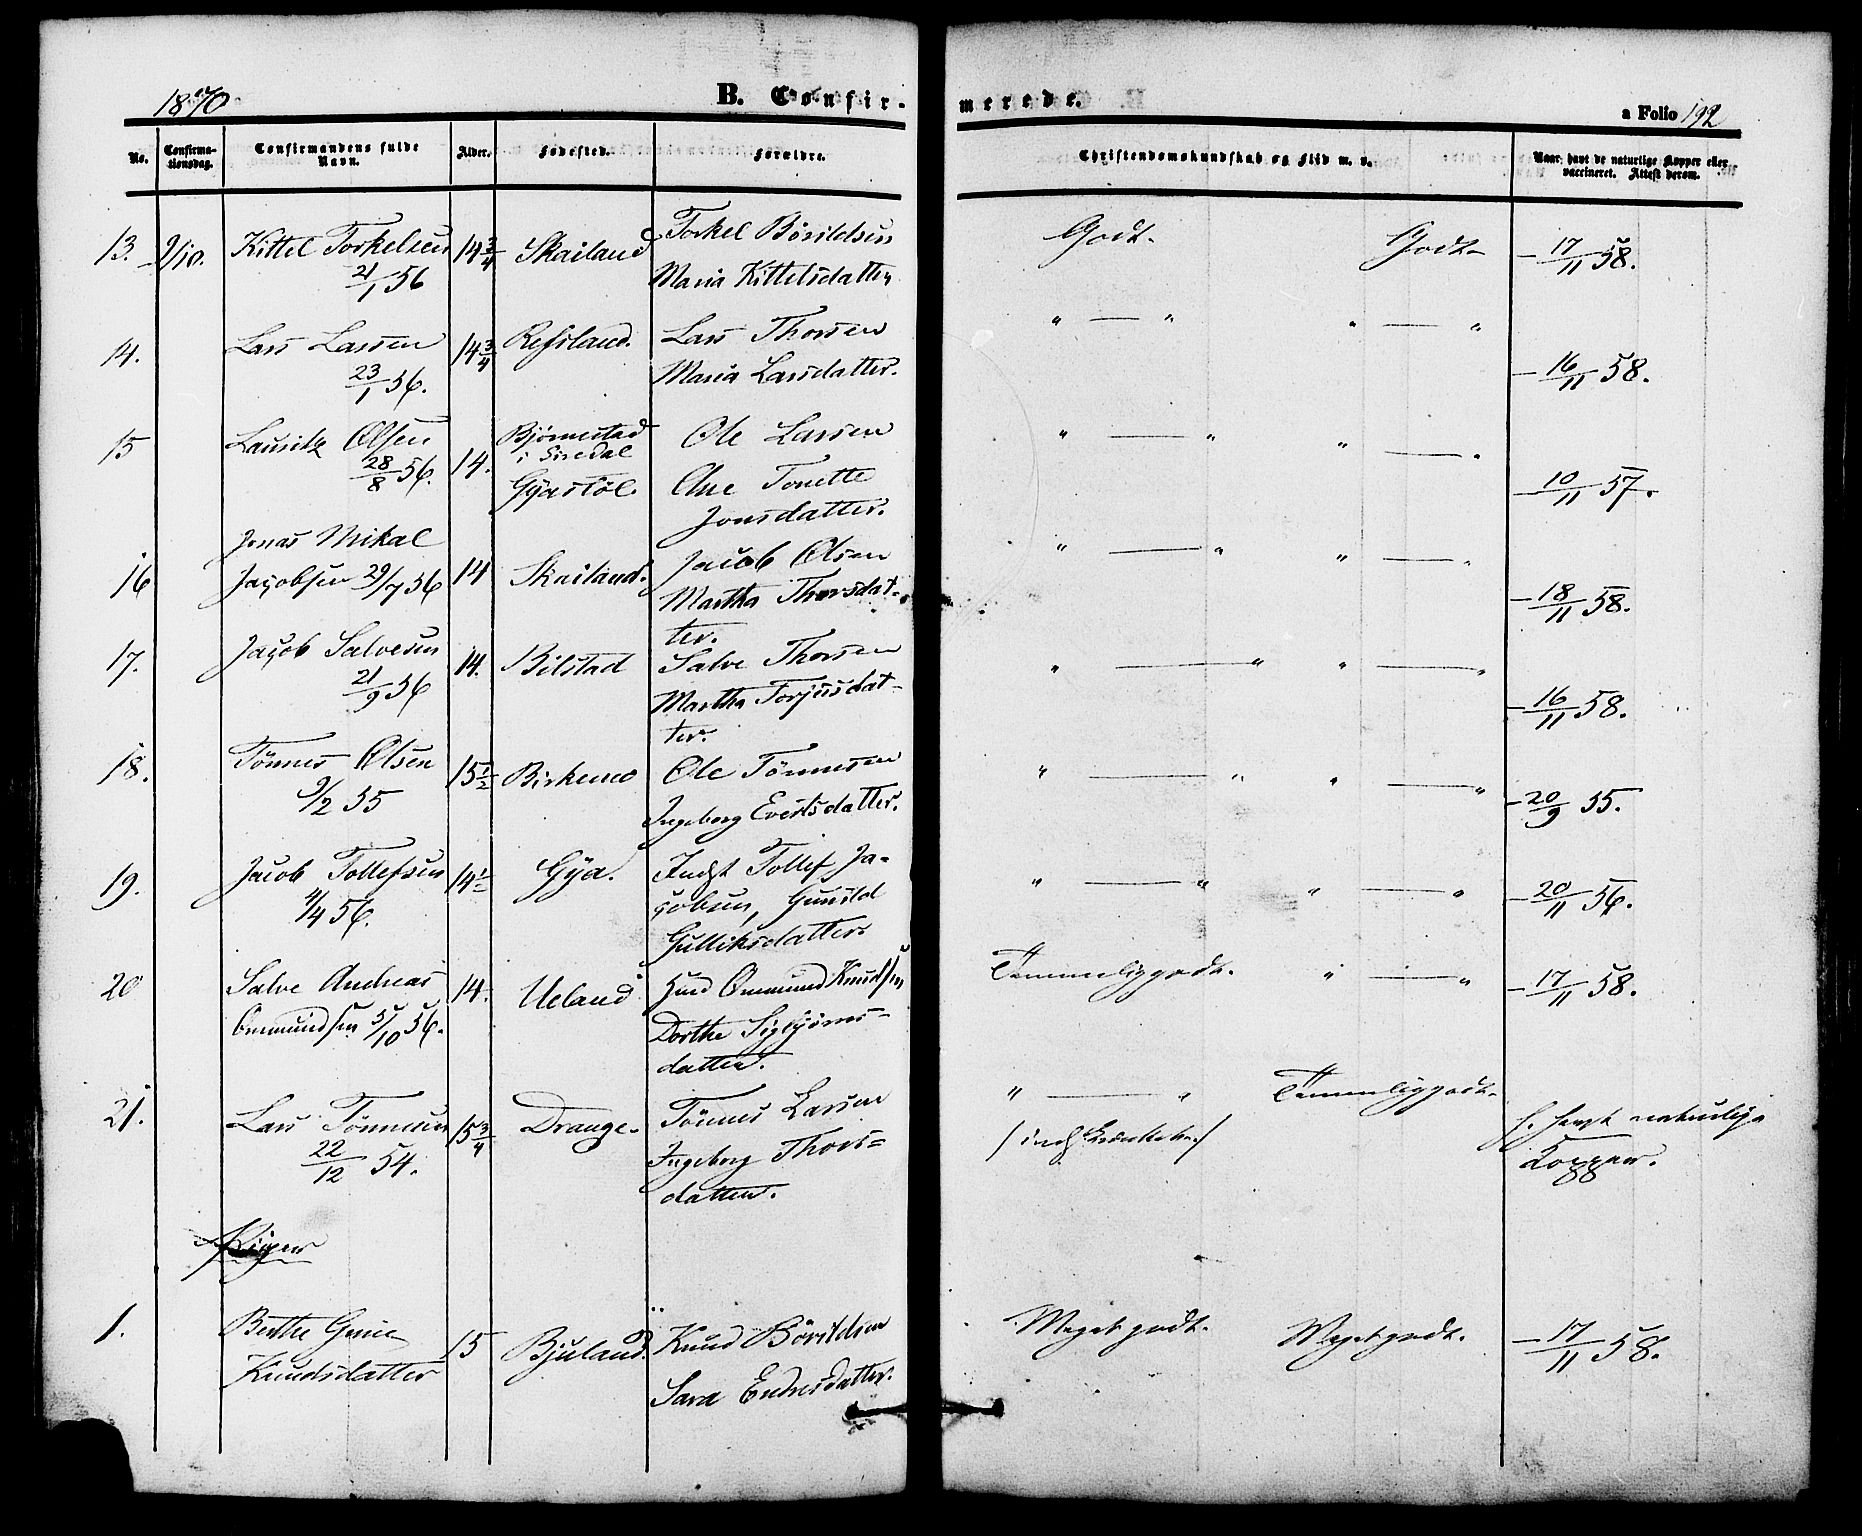 1870
B. Confir-
merede.
a Folio 192
No.
Confirma-
tionsdag.
Confirmandens fulde
Navn.
Alder.
Fødested.
Forældre.
Christendomskundskab og Flid m. v.
Naar havt de naturlige Kopper eller
vaccineret. Attest derom.
13. 9/10. Kittel Torkelsen 14 3/4 Skailand Torkel Börildsen Godt. Godt. 17/11 58.
21/1 56 Maria Kittelsdatter
14. Lars Larsen 14 3/4 Refsland. Lars Thorsen " — " " — " 16/11 58.
23/1 56. Maria Larsdatter.
15 Lauritz Olsen 14. Bjørnestad Ole Larsen " — " " — " 10/11 57.
28/8 56. i Siredal
Gyastöl. Ane Tonette
Jonsdatter.
Jonas Mikal
16 Jacobsen 29/7 56 14 Skailand. Jacob Olsen " — " " — " 18/11 58.
Martha Thorsdat-
ter.
17. Jacob Salvesen 14. Bilstad Salve Thorsen " — " " — " 16/11 58.
21/9 56 Martha Torjusdat-
ter.
18. Tönnes Olsen 15 1/2 Birkemo Ole Tönnesen " — " " — " 20/9 55.
9/2 55 Ingeborg Evertsdatter.
19. Jacob Tollefsen 14 1/2 Gya. Indst Tollef Ja- " — " " — " 20/11 56.
4/4 56. cobsen, Gunild
Gulliksdatter.
20 Salve Andreas 14. Ueland Huusd Ommund Knudsen Temmelig godt. " — " 17/11 58.
Ommundsen 5/10 56. Dorthe Sigbjörns-
datter.
21. Lars Tönnesen 15 3/4 Drange. Tönnes Larsen " — " Temmelig godt. h. havt naturlige
22/12 54. Ingeborg Thors- Kopper.
datter.
Piger
1. Berthe Gurie 15 Bjuland. Knud Börildsen Meget godt. Meget godt. 17/11 58.
Knudsdatter Sara Endresdatter.